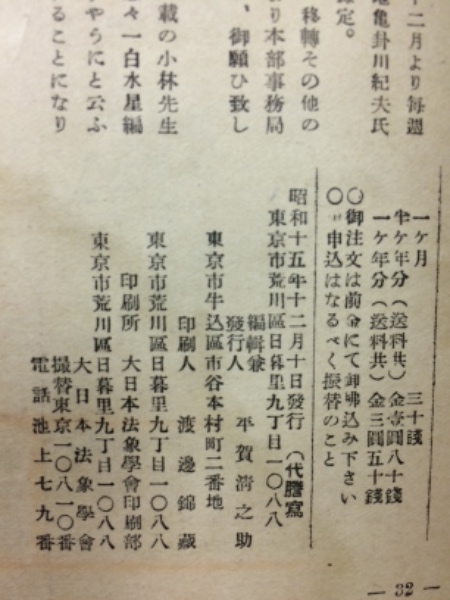 十二月より毎週
亀卦川紀夫氏
確定。
移轉その他の
より本部事務局
、御願ひ致し
載の小林先生
々一白水星編
やうにと云ふ
ることになり
一ケ月 三十錢
半ケ年分（送料共）金壹圓八十錢
一ケ年分（送料共）金三圓五十錢
〇御注文は前金にて御拂込み下さい
〇申込はなるべく振替のこと
昭和十五年十二月十日發行（代謄寫）
東京市荒川區日暮里九丁目一〇八八
編輯兼發行人 平賀清之助
東京市牛込區市谷本村町二番地
印刷人 渡邊錦藏
東京市荒川區日暮里九丁目一〇八八
印刷所 大日本法象學會印刷部
東京市荒川區日暮里九丁目一〇八八
大日本法象學會
振替東京一〇八一〇番
電話池上七九番
— 32 —